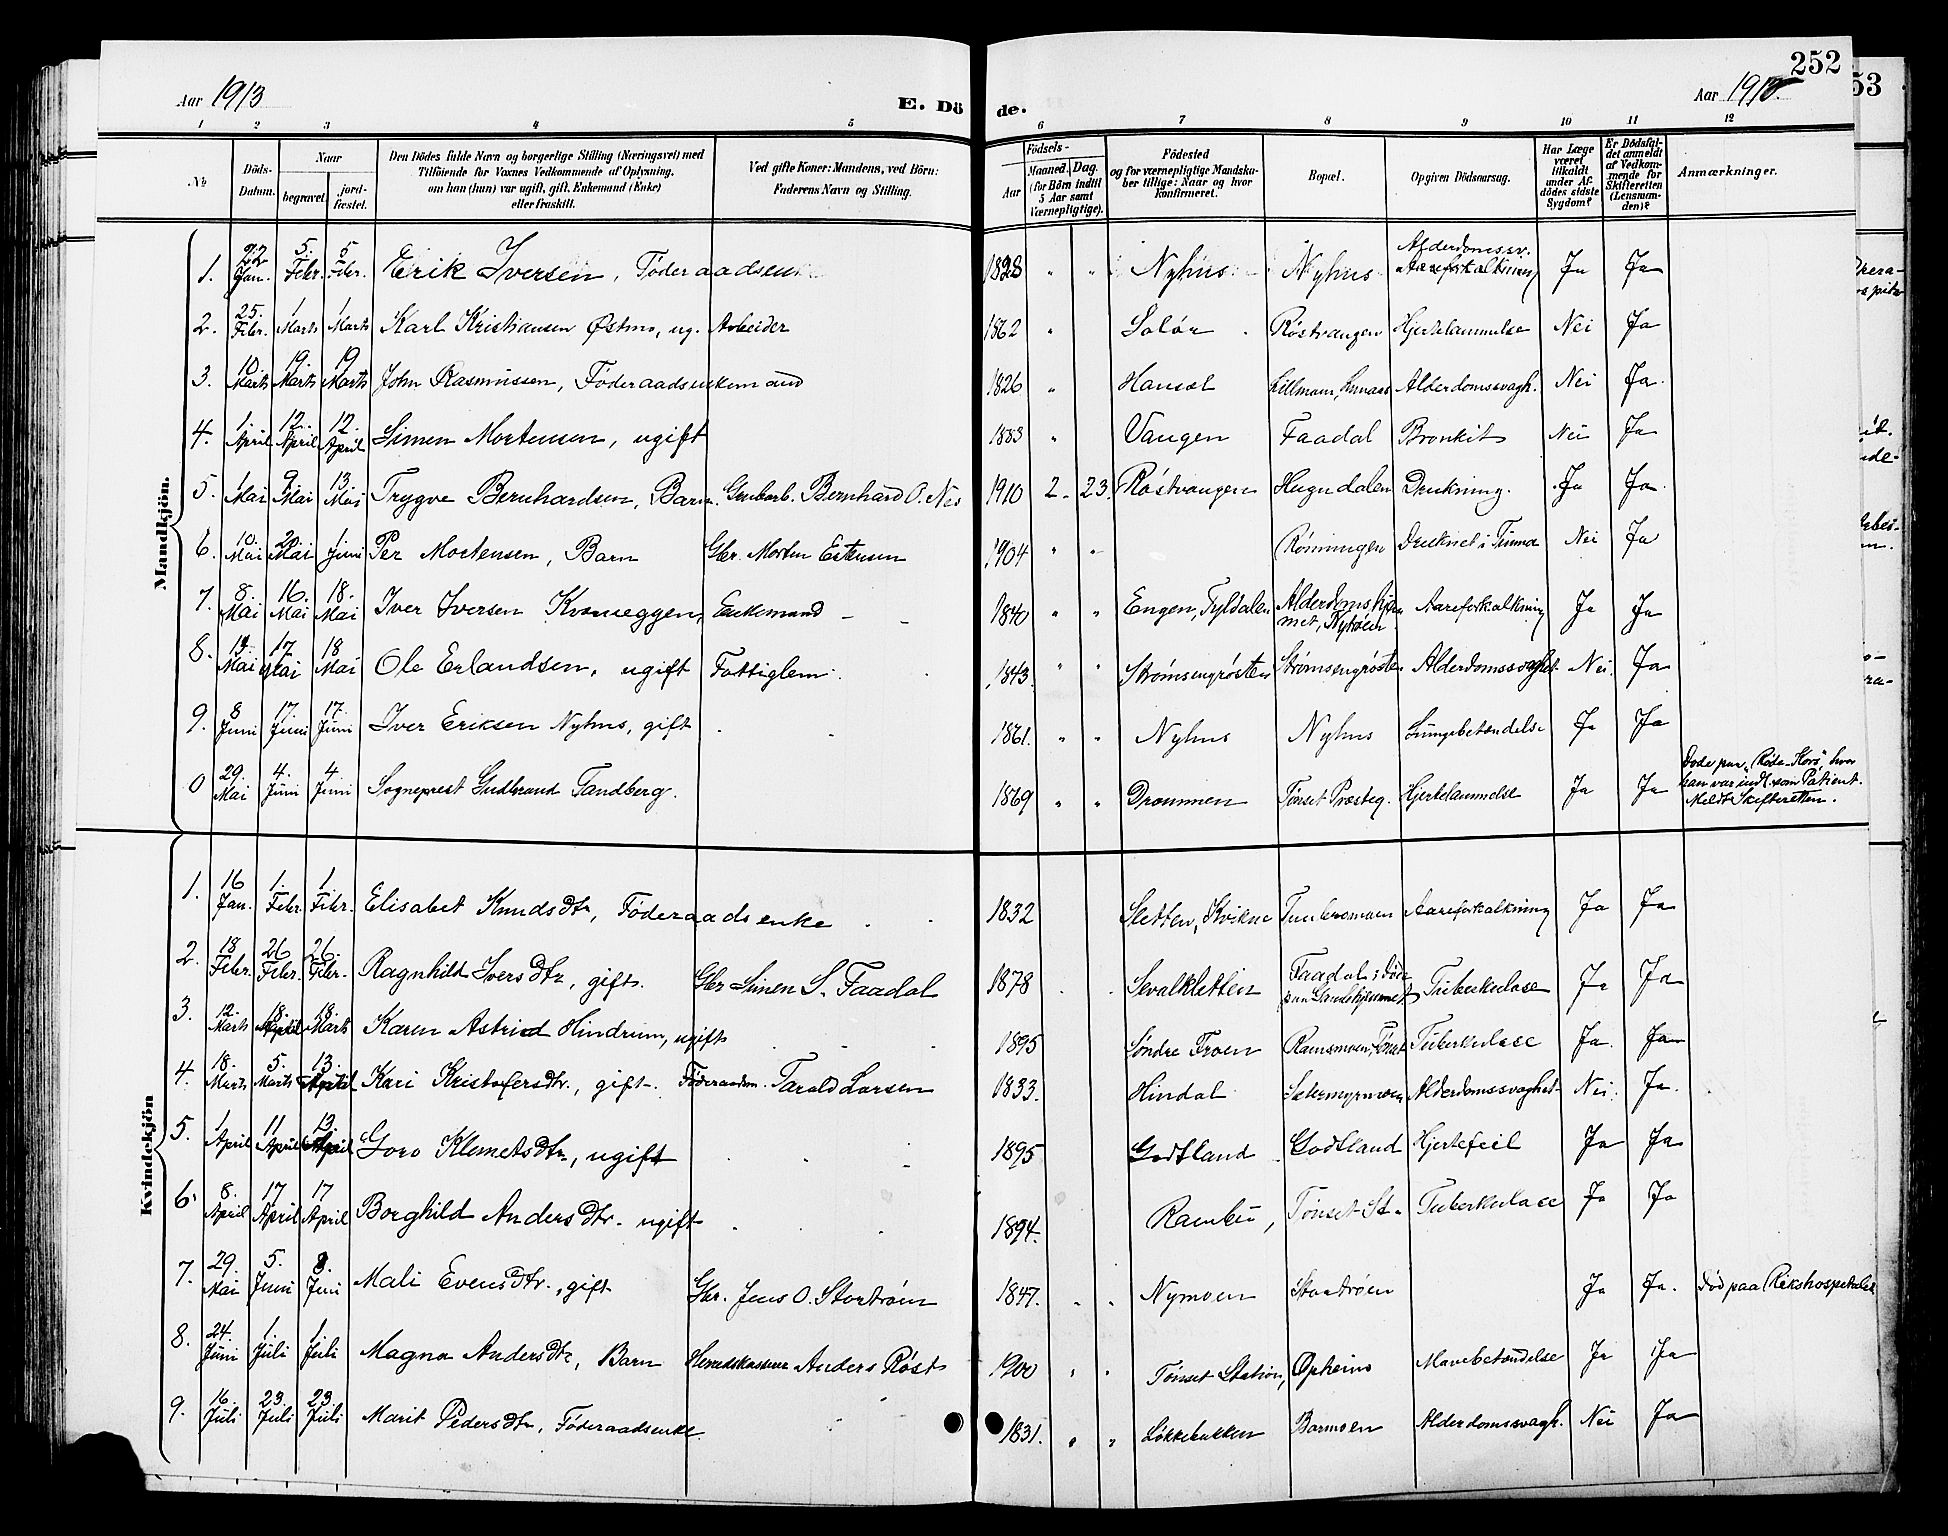 252
53
Aar 1913
E. Dö
de.
Aar 1913
1 2 3 4 5 6 7 8 9 10 11 12
No
Döds-Datum.
Naar
begravet.
jordfæstet.
Den Dödes fulde Navn og borgerlige Stilling (Næringsvei) med Tilföiende for Voxnes Vedkommende af Oplysning, om han (hun) var ugift, gift, Enkemand (Enke) eller fraskilt.
Ved gifte Koner: Mandens, ved Börn: Faderens Navn og Stilling.
Födsels-
Aar
Maaned. Dag.
(for Börn indtil 5 Aar samt Værnepligtige).
Födested og for værnepligtige Mandskaber tillige: Naar og hvor konfirmeret.
Bopæl.
Opgiven Dödsaarsag.
Har Læge været tilkaldt under Afdödes sidste Sygdom?
Er Dödsfaldet anmeldt af Vedkommende for Skifteretten (Lensmanden)?
Anmærkninger.
Mandkjön.
1. 22 Jan. 5. Febr. 5 Febr. Erik Iversen, Föderaadsm 1828 " " Nyhus Nyhus Alderdomssv. Aareforkalkning Ja Ja
2. 25. Febr. 1 Marts 1 Marts Karl Kristiansen Østmo, ug. Arbeider 1862 " Solör Røstvangen Hjertelammelse Nei Ja
3. 10 Marts 19. Marts 19 Marts John Rasmussen, Föderaadsenkemand 1826 " Hansæl Lillmoen, Alderdomssvagh. Nei Ja.
4. 1. April 12. April 12. April Simen Mortensen, ugift 1883 " Vangen Faadal Bronkit Nei Ja
5. 1 Mai 9 Mai 13. Mai Trygve Bernhardsen, Barn. Grubearb. Bernhard O. Nes 1910 2. 23. Røstvangen Hugudalen Drukning. Ja Ja.
6. 10. Mai 20. Mai 1 Juni Per Mortensen, Barn Gbr. Morten Estensen 1904 " " Rønningen Druknet i Tunna Nei Ja
7. 8. Mai 16. Mai 18. Mai Iver Iversen Kvæneggen, Enkemand 1840 " " Engen, Tyldalen Alderdomshjemmet, Nytrøen Aareforkalkning Ja Ja
8. 13. Mai 17 Mai 18 Mai Ole Erlandsen, ugift Fattiglem. 1843. " " Strømsengrøsten Strømsengrøsten Alderdomssvaghet. Nei. Ja
9. 8 Juni 17 Juni 17. Juni Iver Eriksen Nyhus, gift 1861. " " Nyhus Nyhus Lungebetændelse Ja Ja
0 29. Mai 4. Juni 4 Juni Sogneprest Gudbrand Tandberg. 1869 " " Drammen Tönset Præsteg. Hjertelammelse Ja Ja Døde paa "Røde-Kors", hvor han var indl. som Patient. Meldt Skifteretten.
Kvindekjön
1. 16 Jan. 1. Febr. 1. Febr. Elisabet Knudsdtr, Föderaadsenke 1832 Sletten, Kvikne Tunbromoen Aareforkalkning Ja Ja
2. 18 Febr. 26 Febr. 26. Febr. Ragnhild Iversdtr, gift. Gbr Simen S. Faadal 1878 Sevalkletten Faadal; døde paa Tuberkulose Ja Ja
3. 12. Marts 18. 18. Marts Karen Astrid Hindrum, ugift 1895 Søndre Troen Ramsmoen, Tönset Tuberkulose Ja. Ja
4. 18. Marts 5. Marts 13. April Kari Kristofersdtr., gift. Föderaadsm. Tarald Larsen 1833. Hindal Sætermyrmoen Alderdomssvaghet- Nei. Ja.
5. 1 April 11 April 13. April Goro Klemetsdtr, ugift 1895 Godtland Godtland Hjertefeil Ja Ja
6. 8. April 17 April 17 April Borghild Andersdtr. ugift 1894. Rambu, Tönset St. Tuberkulose Ja Ja
7. 29. Mai 5. Juni 8. Juni Mali Evensdtr., gift Gbr. Jens O. Stortrøen 1847. " " Nymoen Stortrøen Ja Ja. Död paa Rikshospitalet
8. 24. Juni 1. Juli 1 Juli Magna Andersdtr, Barn Herredskasserer Anders Røst 1900 " " Tönset Station, Opheim Mavebetændelse Ja Ja
9. 16. Juli 23. Juli 23. Juli Marit Pedersdtr, Föderaadsenke 1831. " " Løkkebakken Barmoen Alderdomssvagh. Nei Ja